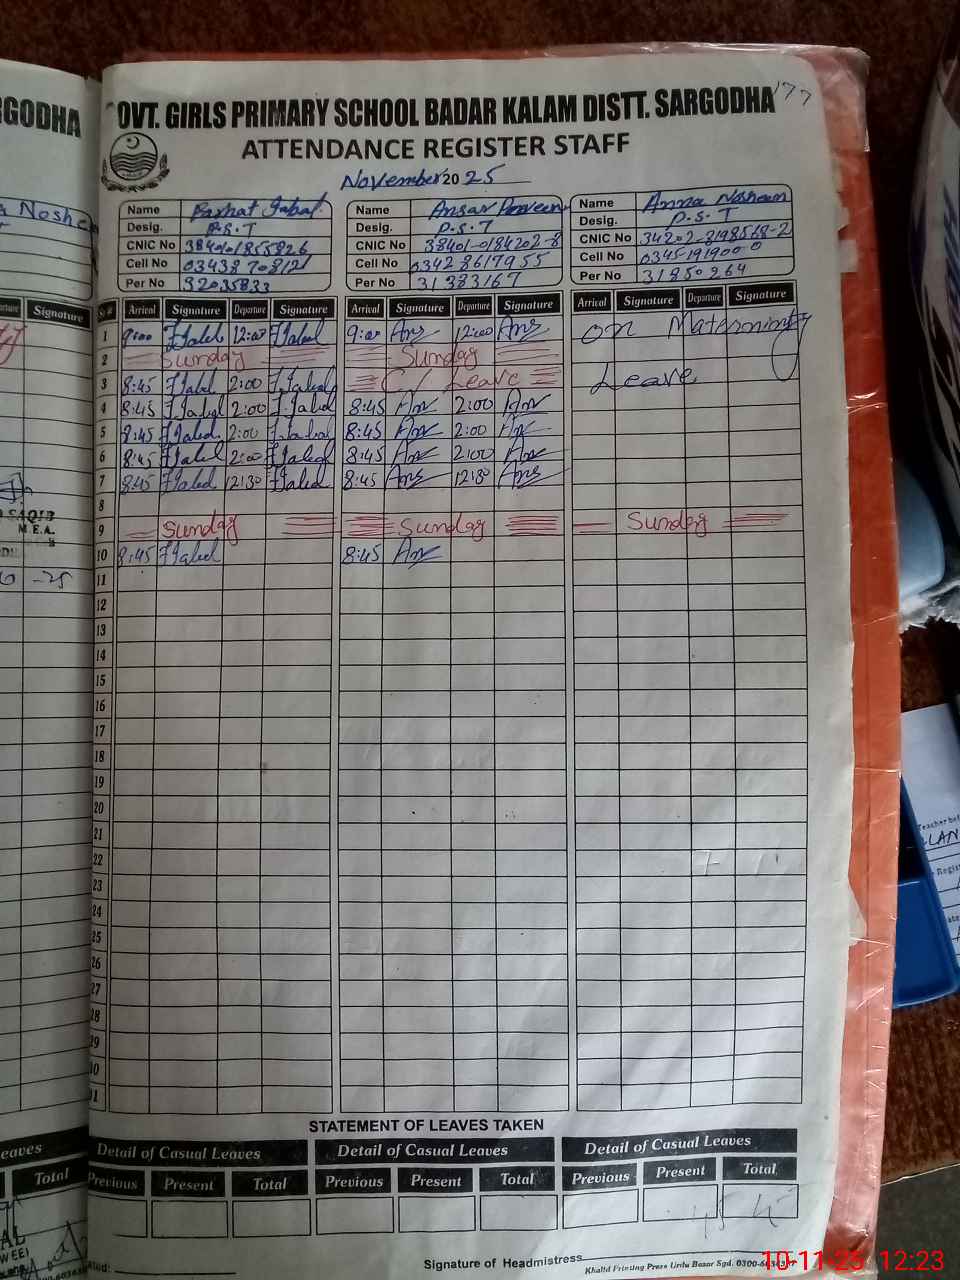 RGODHA
OVT. GIRLS PRIMARY SCHOOL BADAR KALAM DISTT. SARGODHA
177
ATTENDANCE REGISTER STAFF
November 2025
Name Farhat Iqbal Name Ansar Parveen Name Amna Nosheen
Desig. P.S.T Desig. P.S.T Desig. P.S.T
CNIC No CNIC No 38401-0184202-8 CNIC No 34202-8198518-2
Cell No 03438708121 Cell No 03428617955 Cell No 03451919000
Per No 32035833 Per No 31383167 Per No 31850264
Signature Sr # Arrival Signature Departure Signature Arrival Signature Departure Signature Arrival Signature Departure Signature
1 9:00 12:00 9:00 Ans 12:00 Ans on Materninty
2 Sunday Sunday
3 8:45 2:00 C/ Leave Leave
4 8:45 2:00 8:45 2:00
5 8:45 2:00 8:45 2:00
6 8:45 2:00 8:45 2:00
7 8:45 12:30 8:45 Ans 12:30 Ans
8
9 Sunday Sunday Sunday
10 8:45 8:45
11
12
13
14
15
16
17
18
19
20
21
22
23
24
25
26
27
28
29
30
31
STATEMENT OF LEAVES TAKEN
eaves Detail of Casual Leaves Detail of Casual Leaves Detail of Casual Leaves
Total Previous Present Total Previous Present Total Previous Present Total
45 45
Signature of Headmistress
Khalid Printing Press Urdu Bazar Sgd.
10-11-25 12:23